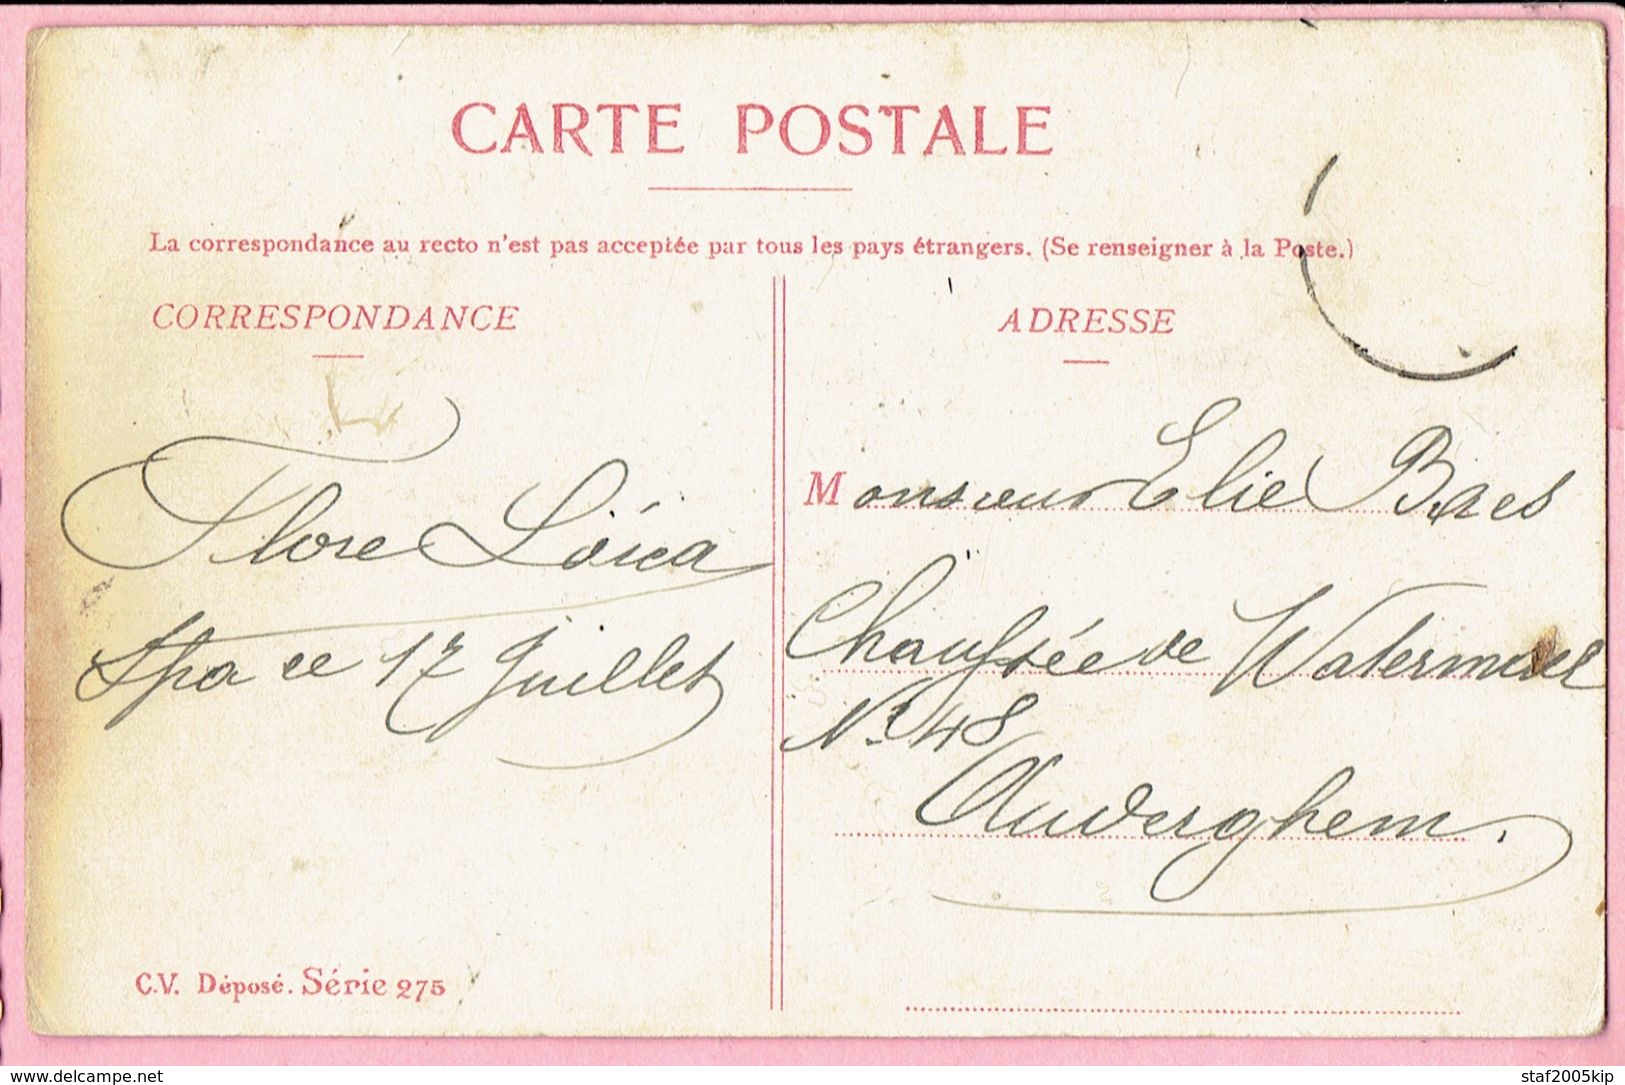 CARTE POSTALE
La correspondance au recto n'est pas acceptée par tous les pays étrangers. (Se renseigner à la Poste.)
CORRESPONDANCE
Flore Loïca
Spa ce 17 Juillet
C.V. Déposé. Série 275
ADRESSE
Monsieur Elie Baes
Chaussée de Watermael
N° 48
Auderghem.
delcampe.net
staf2005kip